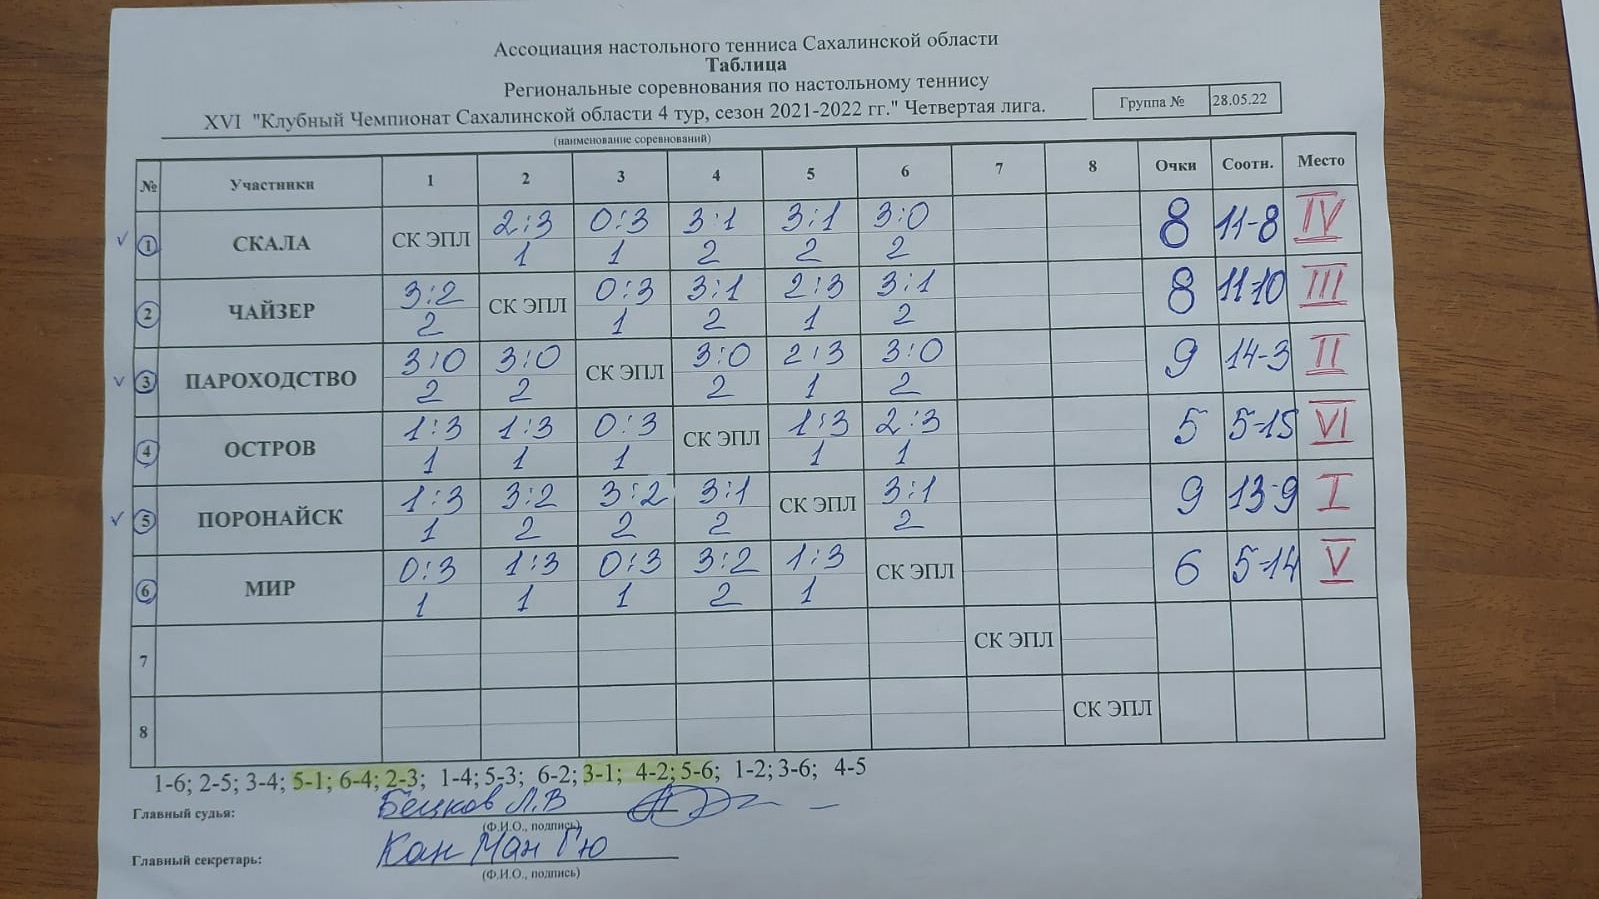 Ассоциация настольного тенниса Сахалинской области
Таблица
Региональные соревнования по настольному теннису
XVI "Клубный Чемпионат Сахалинской области 4 тур, сезон 2021-2022 гг." Четвертая лига.
Группа № 28.05.22
(наименование соревнований)
№ Участники 1 2 3 4 5 6 7 8 Очки Соотн. Место
1 СКАЛА СК ЭПЛ 2:3 0:3 3:1 3:1 3:0 8 11-8 IV
1 1 2 2 2
2 ЧАЙЗЕР 3:2 СК ЭПЛ 0:3 3:1 2:3 3:1 8 11-10 III
2 1 2 1 2
3 ПАРОХОДСТВО 3:0 3:0 СК ЭПЛ 3:0 2:3 3:0 9 14-3 II
2 2 2 1 2
4 ОСТРОВ 1:3 1:3 0:3 СК ЭПЛ 1:3 2:3 5 5-15 VI
1 1 1 1 1
5 ПОРОНАЙСК 1:3 3:2 3:2 3:1 СК ЭПЛ 3:1 9 13-9 I
1 2 2 2 2
6 МИР 0:3 1:3 0:3 3:2 1:3 СК ЭПЛ 6 5-14 V
1 1 1 2 1
7 СК ЭПЛ
8 СК ЭПЛ
1-6; 2-5; 3-4; 5-1; 6-4; 2-3; 1-4; 5-3; 6-2; 3-1; 4-2; 5-6; 1-2; 3-6; 4-5
Главный судья: Бецков Л.В
(Ф.И.О., подпись)
Главный секретарь: Кан Ман Гю
(Ф.И.О., подпись)